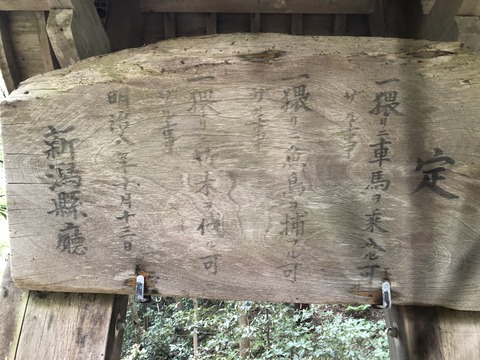 定
一猥リニ車馬ヲ乗入可
ザル事
一猥リニ魚鳥ヲ捕フル可
ザル事
一猥リニ竹木ヲ伐ル可
ザル事
明治八年十月十三日
新潟縣廳